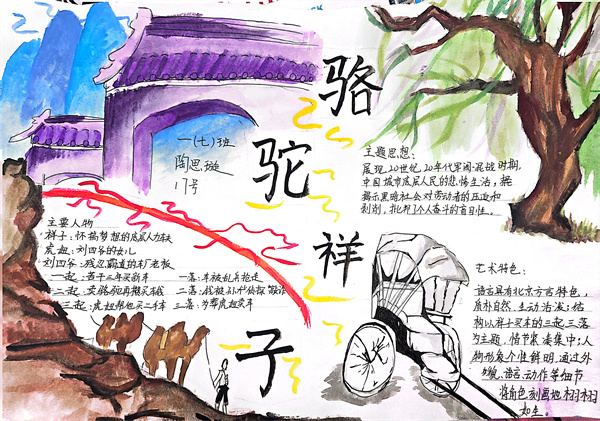 骆
驼
祥
子
一(七)班
陶思璇
17号
主题思想:
展现20世纪20年代军阀混战时期,
中国城市底层人民的悲惨生活,揭
露黑暗社会对劳动者的压迫和
剥削,批判了个人奋斗的盲目性。
主要人物
祥子:怀揣梦想的底层人力车夫
虎妞:刘四爷的女儿
刘四爷:残忍霸道的车厂老板
一起:苦干三年买新车
一落:车被乱兵抢走
二起:卖骆驼再攒买车钱
二落:钱被孙侦探敲诈
三起:虎妞帮他买二手车
三落:为葬虎妞卖车
艺术特色:
语言具有北京方言特色,
质朴自然、生动活泼;结
构以祥子买车的三起三落
为主题,情节紧凑集中;人
物形象个性鲜明,通过外
貌、语言、动作等细节
将角色刻画地栩栩
如生。